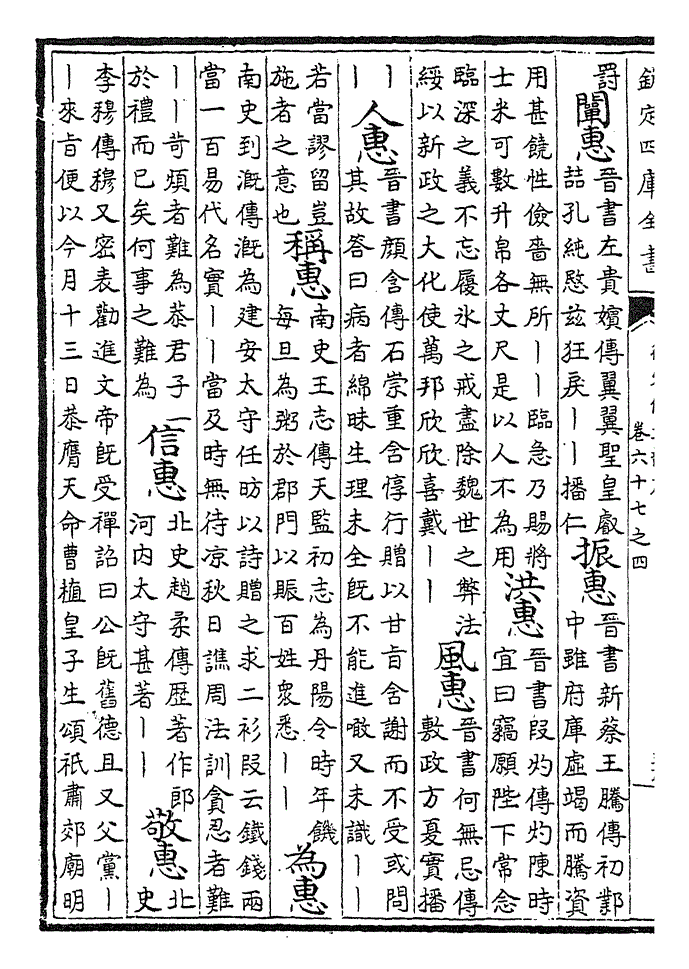 欽定四庫全書
卷六十七之四
罰闡惠晉書左貴嬪傳翼翼聖皇叡喆孔純愍兹狂戾丨丨播仁振惠晉書新蔡王騰傳初鄴中雖府庫虛竭而騰資
用甚饒性儉嗇無所丨丨臨急乃賜將士米可數升帛各丈尺是以人不為用洪惠晉書段灼傳灼陳時宜曰竊願陛下常念
臨深之義不忘履氷之戒盡除魏世之弊法綏以新政之大化使萬邦欣欣喜戴丨丨風惠晉書何無忌傳敷政方夏實播
丨丨人惠晉書顔含傳石崇重含惇行贈以甘旨含謝而不受或問其故答曰病者綿昧生理未全既不能進噉又未識丨丨
若當謬留豈施者之意也稱惠南史王志傳天監初志為丹陽令時年饑每旦為粥於郡門以賑百姓衆悉丨丨為惠
南史到溉傳溉為建安太守任昉以詩贈之求二衫段云鐵錢兩當一百易代名實丨丨當及時無待凉秋日譙周法訓貪忍者難
丨丨苛煩者難為恭君子一於禮而已矣何事之難為信惠北史趙柔傳歷著作郎河内太守甚著丨丨敬惠北史
李穆傳穆又密表勸進文帝既受禪詔曰公既舊德且又父黨丨丨來旨便以今月十三日恭膺天命曹植皇子生頌祇肅郊廟明